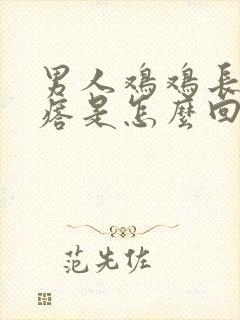 男人鸡鸡長
痞是怎麼回
范先佐